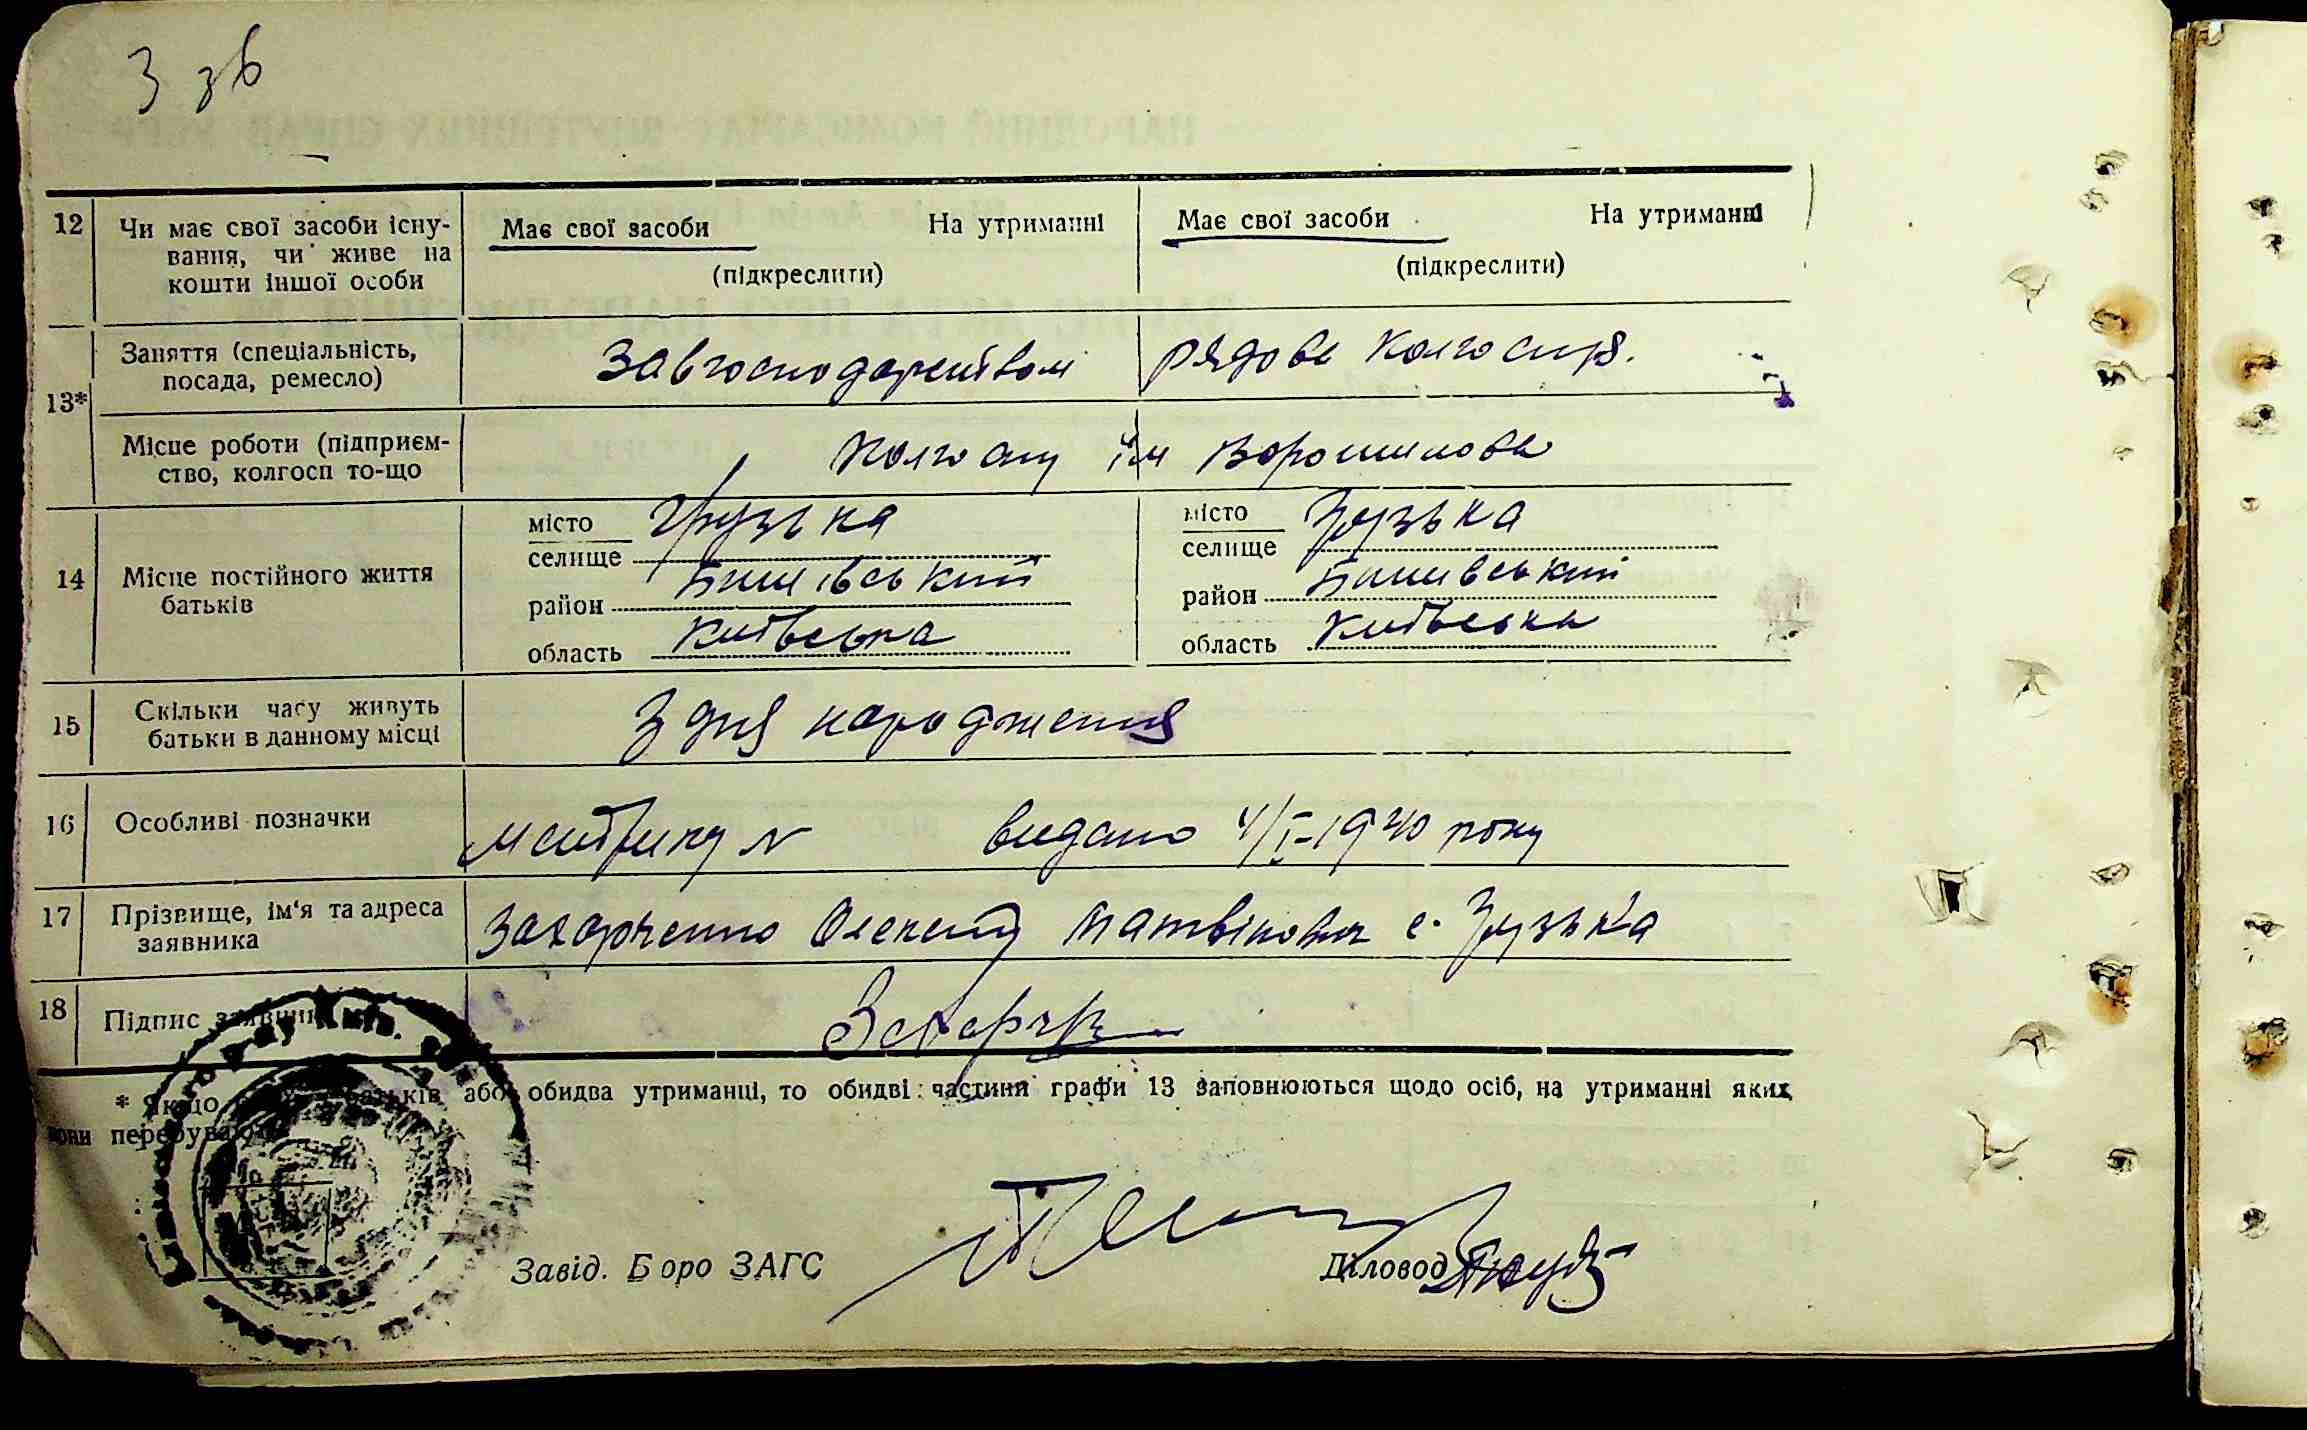 3 зв
12 Чи має свої засоби існу- Має свої засоби На утриманні Має свої засоби На утриманні
вання, чи живе на (підкреслити) (підкреслити)
кошти іншої особи
13* Заняття (спеціальність, Завгосподарством рядова колгоспу.
посада, ремесло)
Місце роботи (підприєм- Колгоспу ім Ворошилова
ство, колгосп то-що
14 Місце постійного життя батьків
місто Грузька місто Грузька
селище селище
район Бишівський район Бишівський
область Київська область Київська
15 Скільки часу живуть З дня народження
батьки в данному місці
16 Особливі позначки метрику № видано 4/I-1940 року
17 Прізвище, ім'я та адреса Захарченко Олексій Матвійович с. Грузька
заявника
18 Підпис заявника
* Якщо батьків або обидва утриманці, то обидві частини графи 13 заповнюються щодо осіб, на утриманні яких
вони перебувають
Завід. Бюро ЗАГС Діловод